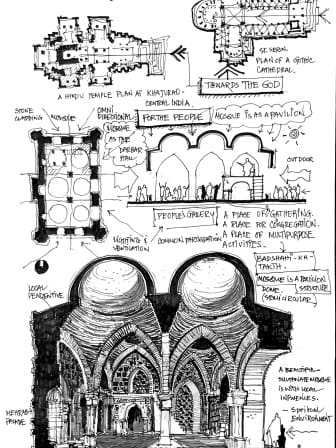 A HINDU TEMPLE PLAN AT KHAJURAHO
CENTRAL INDIA.
PLAN OF A GOTHIC
CATHEDRAL.
TOWARDS THE GOD
STONE
CLADDING
MOSQUE
OMNI
DIRECTIONAL
AS THE
DARBAR
HALL
FOR THE PEOPLE
MOSQUE IS AS A PAVILION
OUTDOOR
LIGHTING &
VENTILATION
PEOPLE'S GALLERY
COMMON PARTICIPATION
A PLACE OF GATHERING.
A PLACE FOR CONGREGATION.
A PLACE OF MULTIPURPOSE
ACTIVITIES.
BADSHAHI-KA-
TAKTH.
MOSQUE IS A PAVILION
DOME STRUCTURE
(SEMICIRCULAR)
LOCAL
PENDENTIVE
A BEAUTIFUL
SULTANATE MOSQUE
IS WITH LOCAL
INFLUENCES.
- SPIRITUAL
ENVIRONMENT